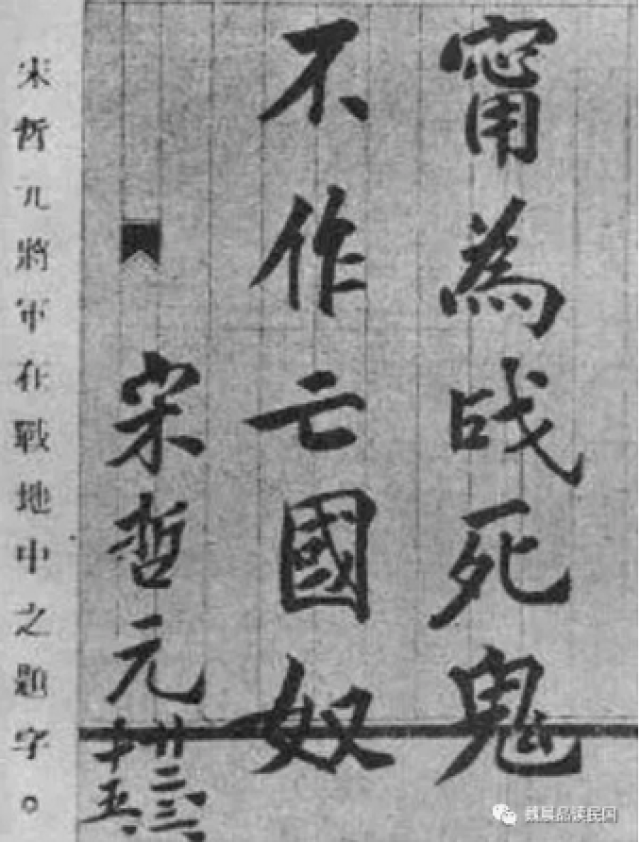 甯為战死鬼
不作亡國奴
宋哲元
廿二、三、
十五、
宋哲元將軍在戰地中之題字。
品读民国